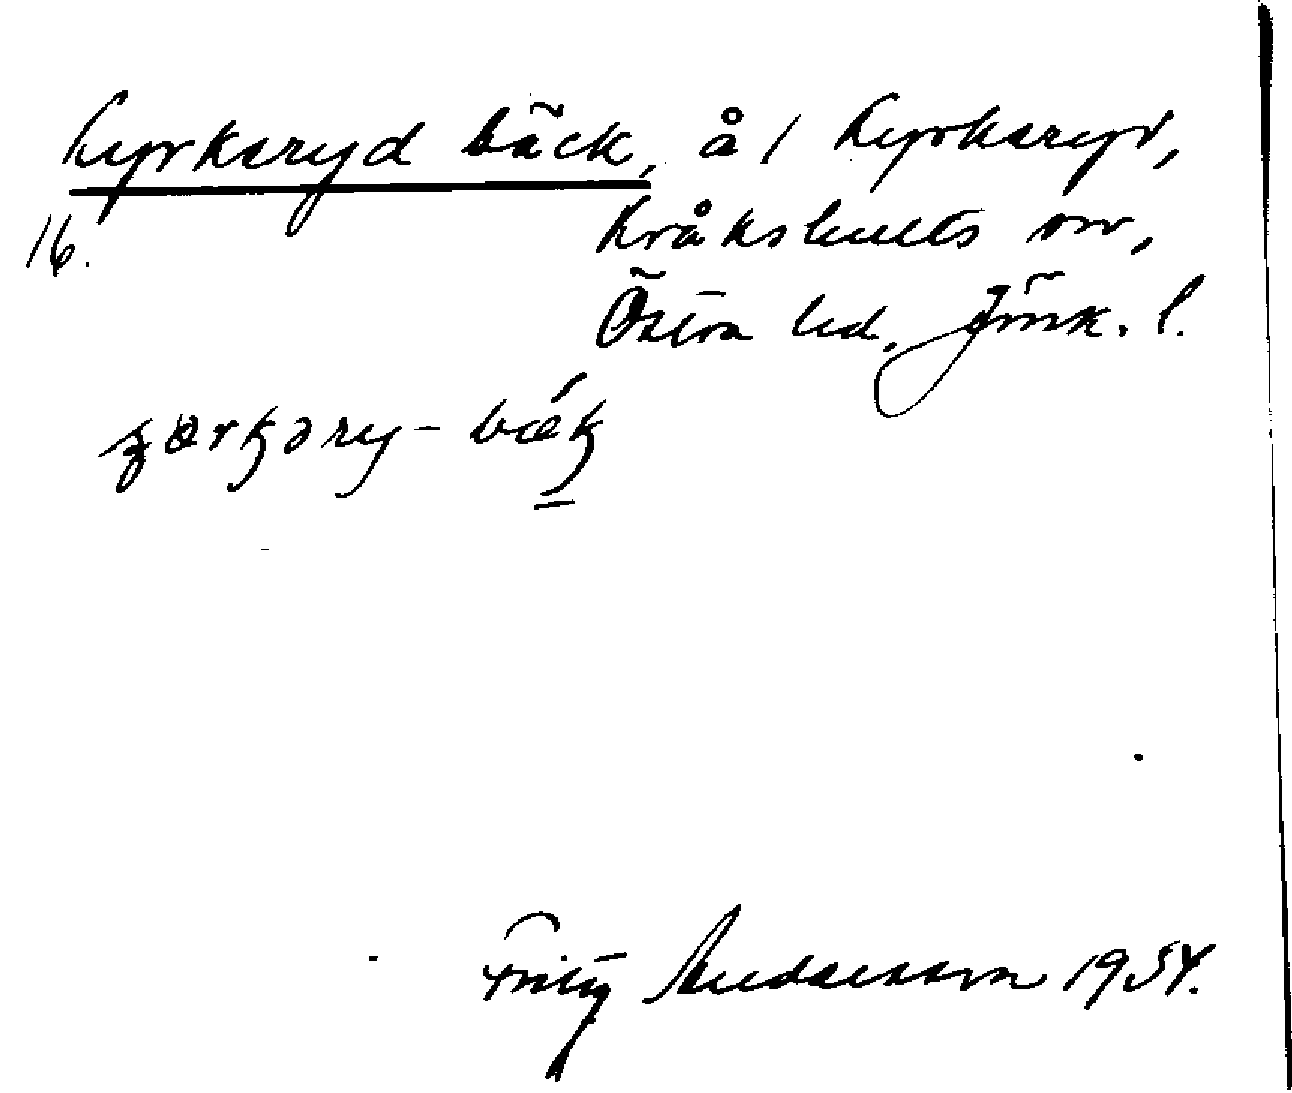 Kyrkeryd bäck, å / Kyrkeryd,
16.
Kråkshults sn,
Östra hd. Jönk. l.
Fritz Andersson 1954.